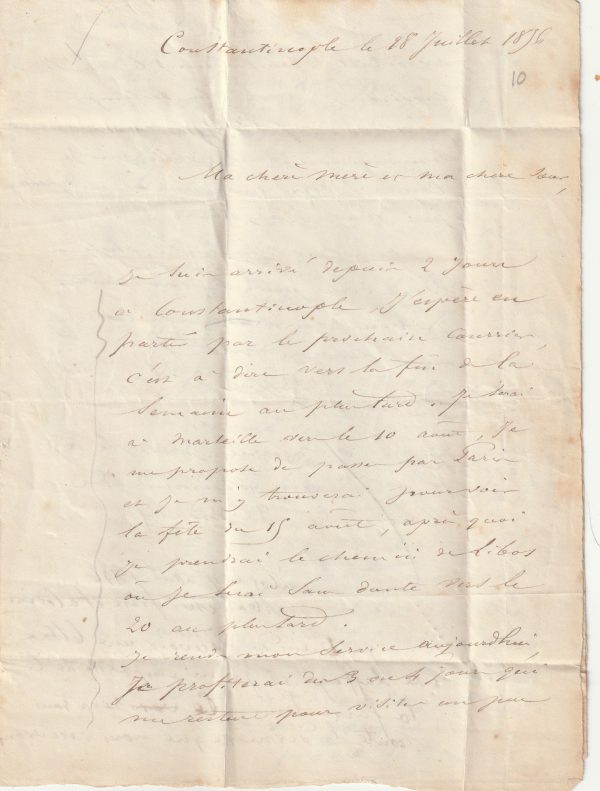 Constantinople le 28 Juillet 1856
10
Ma chère mère et ma chère soeur,
Je suis arrivé depuis 2 jours
à Constantinople, J'espère en
partir par le prochain courrier,
c'est à dire vers la fin de la
semaine au plus tard. Je serai
à Marseille vers le 10 août, Je
me propose de passer par Paris
et je m'y trouverai pour voir
la fête du 15 août, après quoi
je prendrai le chemin de Libos
où je serai sans doute vers le
20 au plus tard.
Je rends mon service aujourdhui
Je profiterai des 3 ou 4 jours qui
me restent pour visiter un peu